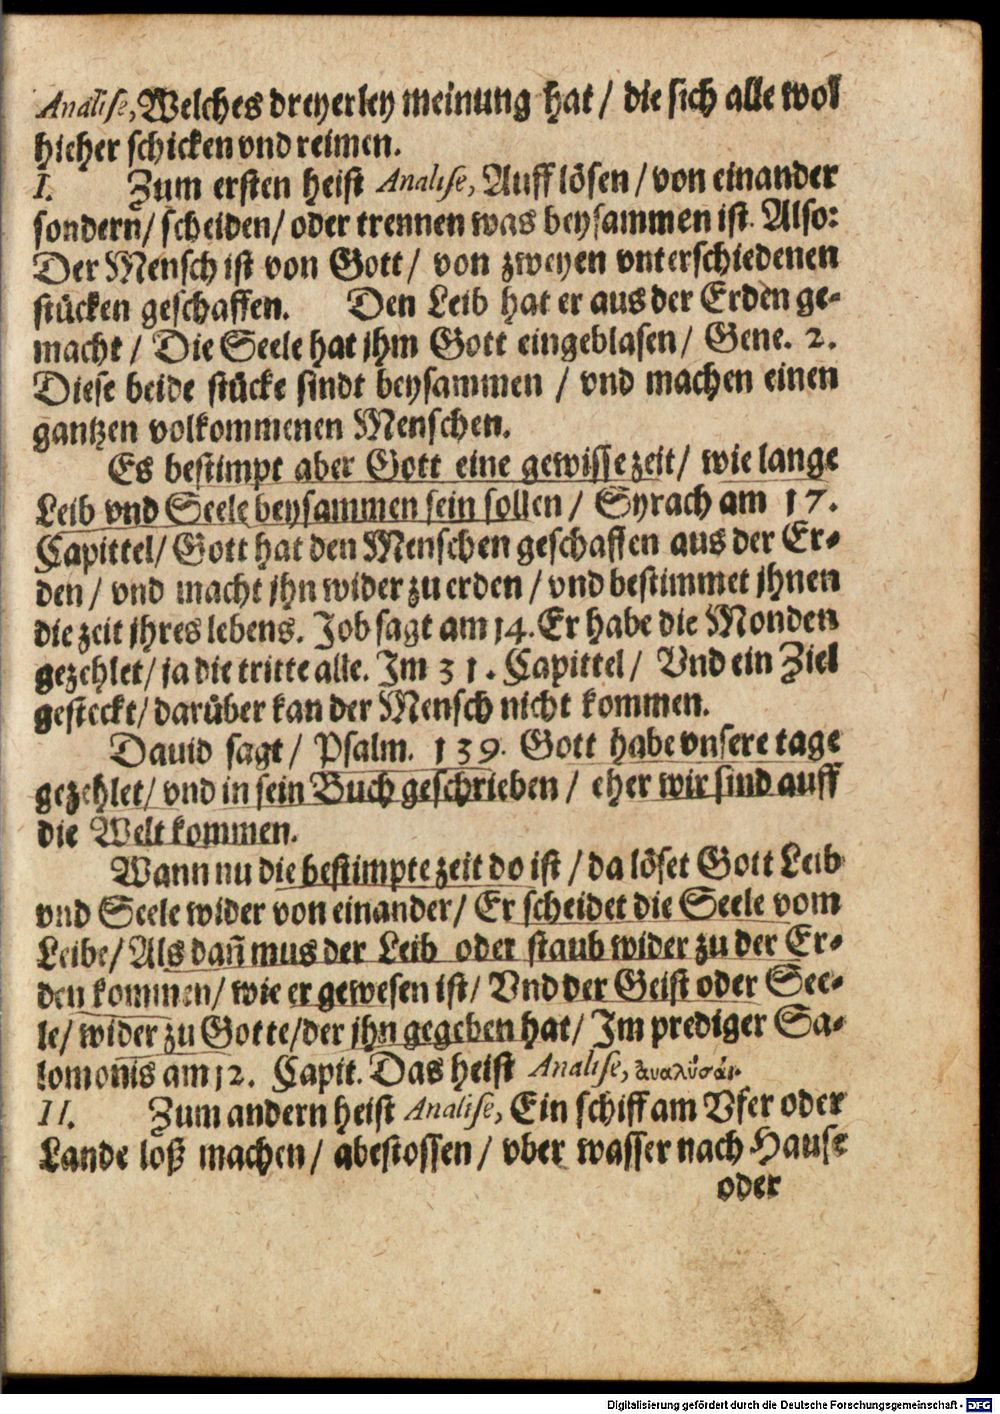 Analise, Welches dreyerley meinung hat / die sich alle wol
hieher schicken vnd reimen.
I. Zum ersten heist Analise, Auff lösen / von einander
sondern / scheiden / oder trennen was beysammen ist. Also:
Der Mensch ist von Gott / von zweyen vnterschiedenen
stücken geschaffen. Den Leib hat er aus der Erden ge-
macht / Die Seele hat jhm Gott eingeblasen / Gene. 2.
Diese beide stücke sindt beysammen / vnd machen einen
gantzen volkommenen Menschen.
Es bestimpt aber Gott eine gewisse zeit / wie lange
Leib vnd Seele beysammen sein sollen / Syrach am 17.
Capittel / Gott hat den Menschen geschaffen aus der Er-
den / vnd macht jhn wider zu erden / vnd bestimmet jhnen
die zeit jhres lebens. Job sagt am 14. Er habe die Monden
gezehlet / ja die tritte alle. Im 31. Capittel / Vnd ein Ziel
gesteckt / darüber kan der Mensch nicht kommen.
Dauid sagt / Psalm. 139. Gott habe vnsere tage
gezehlet / vnd in sein Buch geschrieben / eher wir sind auff
die Welt kommen.
Wann nu die bestimpte zeit do ist / da löset Gott Leib
vnd Seele wider von einander / Er scheidet die Seele vom
Leibe / Als dañ mus der Leib oder staub wider zu der Er-
den kommen / wie er gewesen ist / Vnd der Geist oder See-
le / wider zu Gotte / der jhn gegeben hat / Im prediger Sa-
lomonis am 12. Capit. Das heist Analise, ἀναλῦσαι.
II. Zum andern heist Analise, Ein schiff am Vfer oder
Lande loß machen / abestossen / vber wasser nach Hause
oder
Digitalisierung gefördert durch die Deutsche Forschungsgemeinschaft - DFG